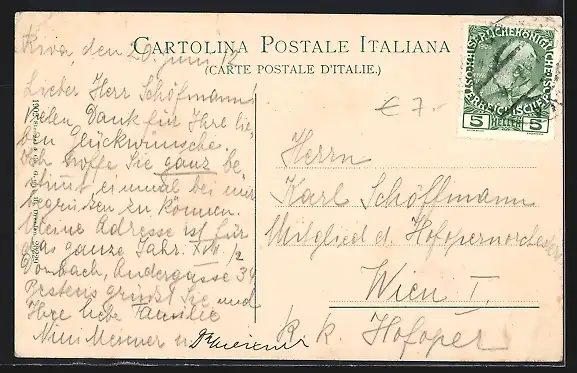 CARTOLINA POSTALE ITALIANA
(CARTE POSTALE D'ITALIE.)
Riva, den 20 Juni 12
Lieber Herr Schöffmann!
Vielen Dank für Ihre lie-
ben Glückwünsche.
Ich hoffe Sie ganz be
stimmt einmal bei mir
begrüßen zu können.
Meine Adresse ist für
das ganze Jahr. XVII/2
Dornbach, Andergasse 34
Bestens grüßt Sie und
Ihre liebe Familie
Mimi
€ 7.-
ÖSTERREICHISCHE
5 HELLER 5
Herrn
Karl Schöffmann
Mitglied d. Hofopernorchesters
Wien I.
k. k. Hofoper